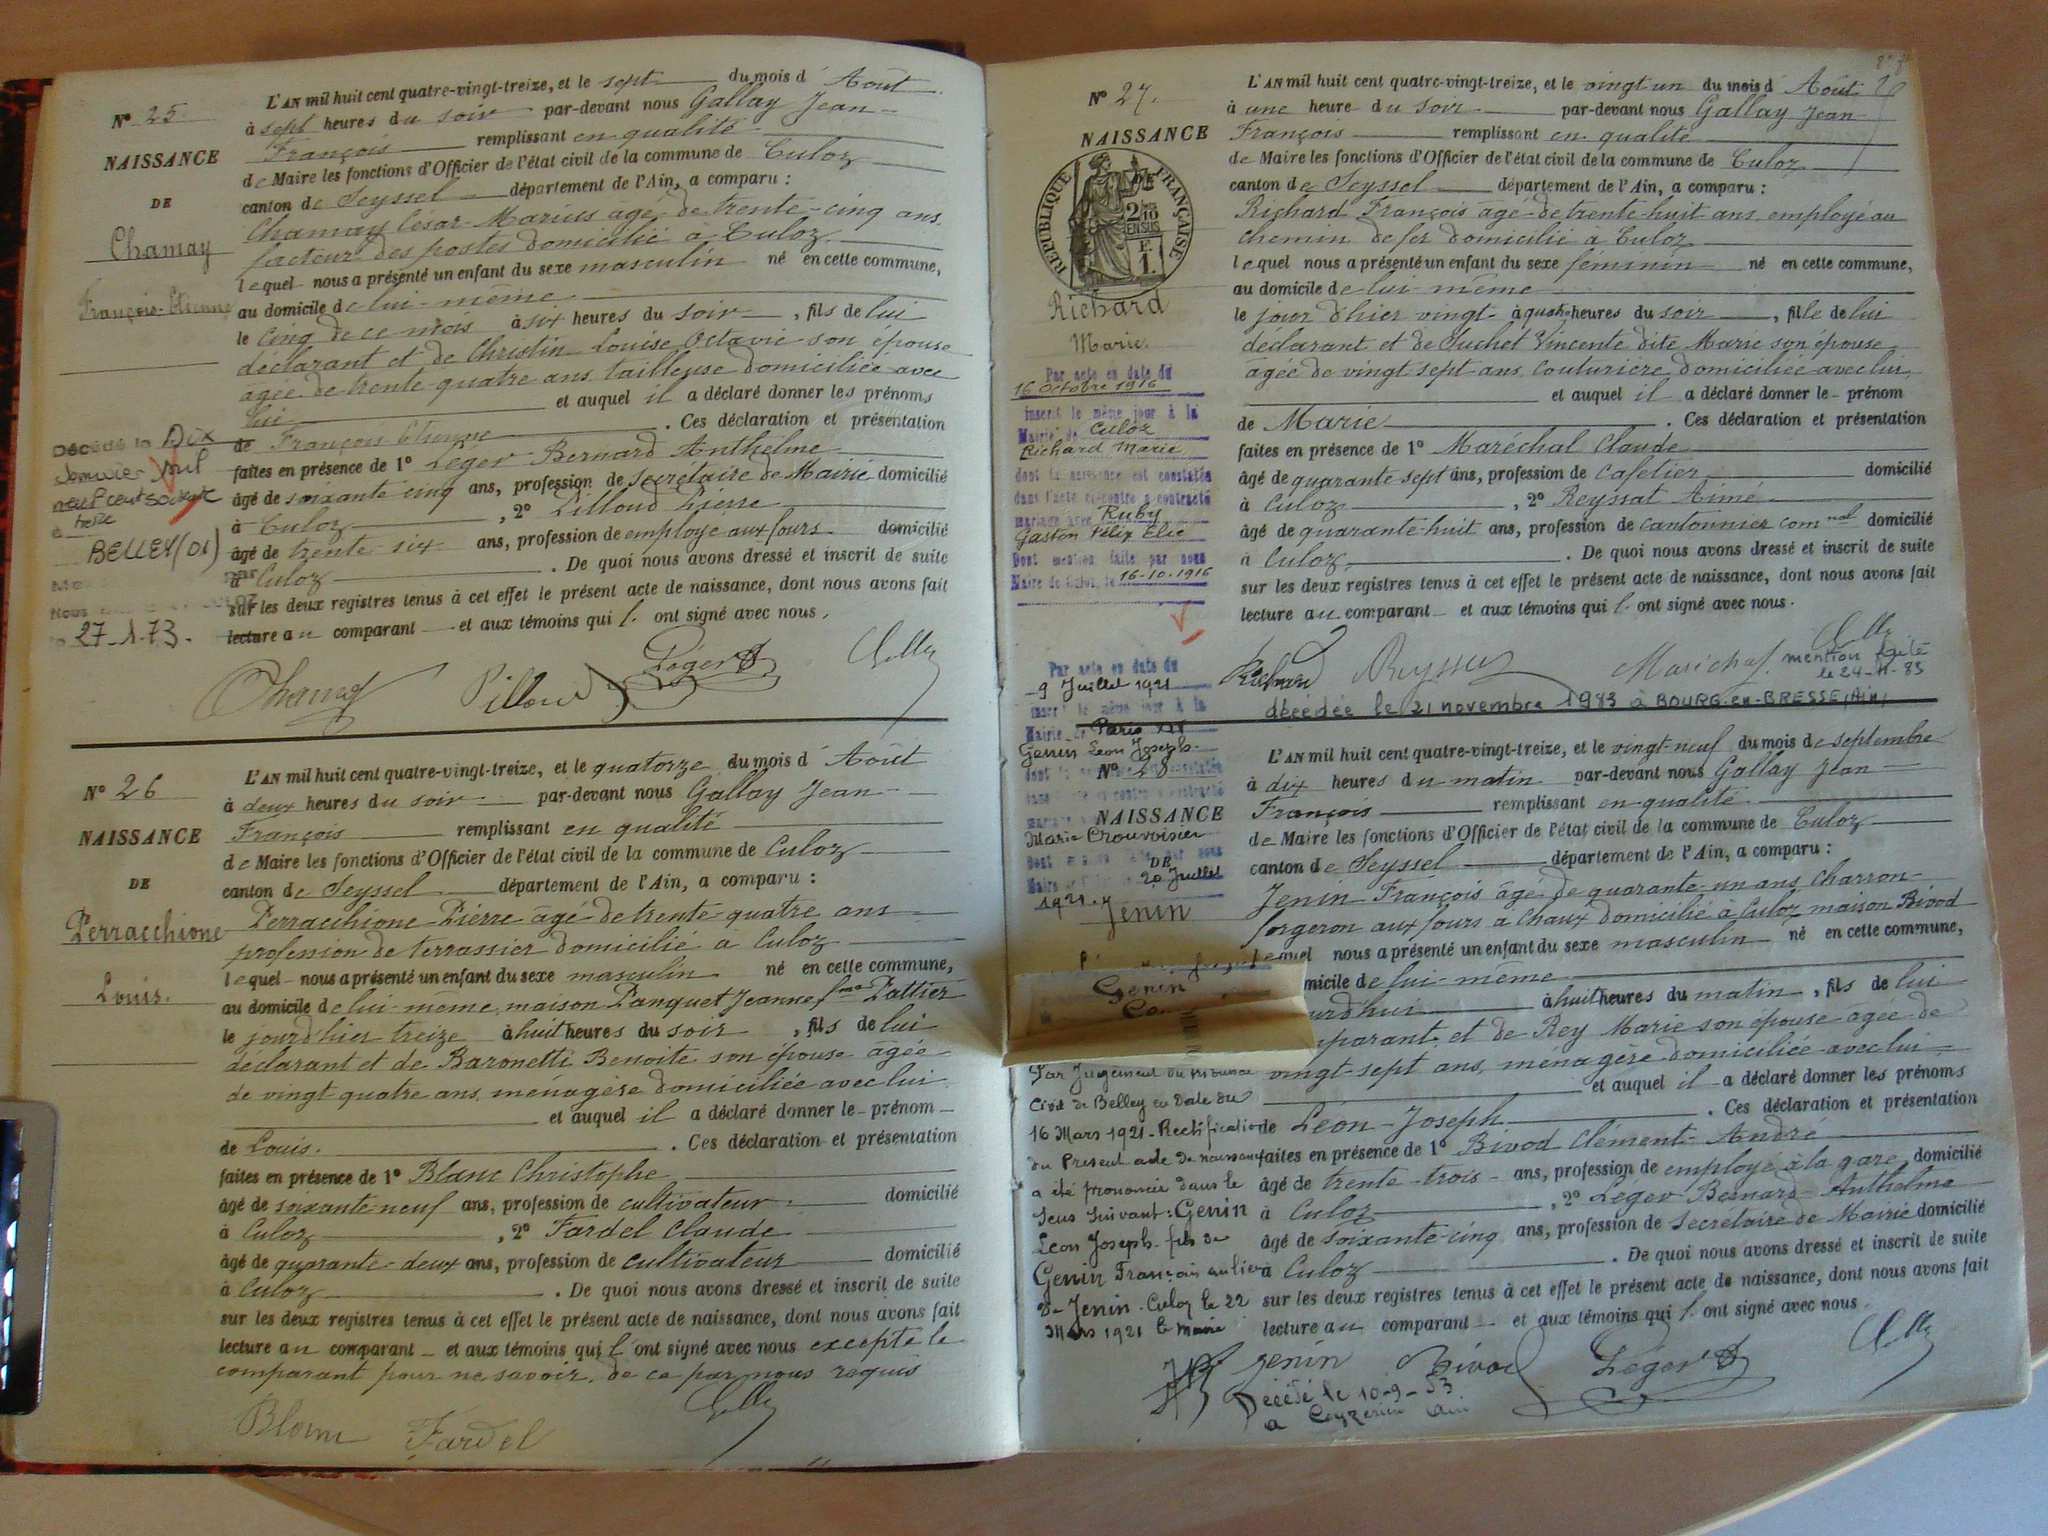 N° 25
NAISSANCE
DE
Chamay
François-Etienne
Décédé le Dix
Janvier mil
neuf cent soixante
treize
BELLEY (01)
27-1-73.
L'AN mil huit cent quatre-vingt-treize, et le sept du mois d'Août
à sept heures du soir par-devant nous Gallay Jean-
François remplissant en qualité
de Maire les fonctions d'Officier de l'état civil de la commune de Culoz
canton de Seyssel département de l'Ain, a comparu :
Chamay César Marius âgé de trente-cinq ans,
facteur des postes domicilié à Culoz
lequel nous a présenté un enfant du sexe masculin né en cette commune,
au domicile de lui-même
le cinq de ce mois à six heures du soir, fils de lui
déclarant et de Christin Louise Octavie son épouse
âgée de trente quatre ans tailleuse domiciliée avec
lui et auquel il a déclaré donner les prénoms
de François Etienne. Ces déclaration et présentation
faites en présence de 1° Léger Bernard Anthelme
âgé de soixante cinq ans, profession de secrétaire de Mairie domicilié
à Culoz, 2° Pilloud Pierre
âgé de trente-six ans, profession de employé aux fours domicilié
à Culoz. De quoi nous avons dressé et inscrit de suite
sur les deux registres tenus à cet effet le présent acte de naissance, dont nous avons fait
lecture au comparant et aux témoins qui l'ont signé avec nous.
Chamay Pilloud Léger B
N° 26
NAISSANCE
DE
Perracchione
Louis.
L'AN mil huit cent quatre-vingt-treize, et le quatorze du mois d'Août
à deux heures du soir par-devant nous Gallay Jean-
François remplissant en qualité
de Maire les fonctions d'Officier de l'état civil de la commune de Culoz
canton de Seyssel département de l'Ain, a comparu :
Perracchione Pierre âgé de trente-quatre ans
profession de terrassier domicilié à Culoz
lequel nous a présenté un enfant du sexe masculin né en cette commune,
au domicile de lui-même, maison Panquet Jeanne fme Pattier
le jour d'hier treize à huit heures du soir, fils de lui
déclarant et de Baronetti Benoite son épouse âgée
de vingt quatre ans, ménagère domiciliée avec lui
et auquel il a déclaré donner le prénom
de Louis. Ces déclaration et présentation
faites en présence de 1° Blanc Christophe
âgé de soixante-neuf ans, profession de cultivateur domicilié
à Culoz, 2° Fardel Claude
âgé de quarante-deux ans, profession de cultivateur domicilié
à Culoz. De quoi nous avons dressé et inscrit de suite
sur les deux registres tenus à cet effet le présent acte de naissance, dont nous avons fait
lecture au comparant et aux témoins qui l'ont signé avec nous excepté le
comparant pour ne savoir, de ce par nous requis
Blanc Fardel
N° 27.
NAISSANCE
RÉPUBLIQUE FRANÇAISE
2/10 EN SUS
F. 1.
Richard
Marie.
Par acte en date du
16 Octobre 1916
inscrit le même jour à la
Mairie de Culoz
Richard Marie
dont la naissance est constatée
dans l'acte ci-contre a contracté
mariage avec Ruby
Gaston Félix Elie
Dont mention faite par nous
Maire de Culoz, le 16-10-1916
L'AN mil huit cent quatre-vingt-treize, et le vingt un du mois d'Août
à une heure du soir par-devant nous Gallay Jean-
François remplissant en qualité
de Maire les fonctions d'Officier de l'état civil de la commune de Culoz
canton de Seyssel département de l'Ain, a comparu :
Richard François âgé de trente-huit ans, employé au
chemin de fer domicilié à Culoz
lequel nous a présenté un enfant du sexe féminin né en cette commune,
au domicile de lui-même
le jour d'hier vingt à quatre heures du soir, fille de lui
déclarant et de Suchet Vincente dite Marie son épouse
âgée de vingt sept ans, couturière domiciliée avec lui,
et auquel il a déclaré donner le prénom
de Marie. Ces déclaration et présentation
faites en présence de 1° Maréchal Claude
âgé de quarante sept ans, profession de cafetier domicilié
à Culoz, 2° Reyssat Aimé
âgé de quarante-huit ans, profession de cantonnier comnal domicilié
à Culoz. De quoi nous avons dressé et inscrit de suite
sur les deux registres tenus à cet effet le présent acte de naissance, dont nous avons fait
lecture au comparant et aux témoins qui l'ont signé avec nous.
Richard Reyssat Maréchal
mention faite
le 24-11-83
décédée le 21 novembre 1983 à BOURG-en-BRESSE (Ain)
Par acte en date du
9 Juillet 1921
inscrit le même jour à la
Mairie de Paris
Genin Leon Joseph
Marie Crouvoisier
20 Juillet
1921.
N° 28
NAISSANCE
DE
Jenin
Genin
Par Jugement du Tribunal
Civil de Belley en Date du
16 Mars 1921 - Rectification
du Présent acte de naissance
a été prononcée dans le
sens suivant: Genin
Leon Joseph fils de
Genin François au lieu
de Jenin. Culoz le 22
Mars 1921 le Maire
L'AN mil huit cent quatre-vingt-treize, et le vingt-neuf du mois de septembre
à dix heures du matin par-devant nous Gallay Jean
François remplissant en qualité
de Maire les fonctions d'Officier de l'état civil de la commune de Culoz
canton de Seyssel département de l'Ain, a comparu :
Jenin François âgé de quarante-un ans, charron-
forgeron aux fours à chaux domicilié à Culoz maison Bivod
equel nous a présenté un enfant du sexe masculin né en cette commune,
micile de lui-même
urd'hui à huit heures du matin, fils de lui
mparant et de Rey Marie son épouse âgée de
vingt-sept ans, ménagère domiciliée avec lui
et auquel il a déclaré donner les prénoms
de Léon-Joseph. Ces déclaration et présentation
faites en présence de 1° Bivod Clément-André
âgé de trente-trois ans, profession de employé à la gare domicilié
à Culoz, 2° Léger Bernard Anthelme
âgé de soixante-cinq ans, profession de secrétaire de Mairie domicilié
à Culoz. De quoi nous avons dressé et inscrit de suite
sur les deux registres tenus à cet effet le présent acte de naissance, dont nous avons fait
lecture au comparant et aux témoins qui l'ont signé avec nous.
Jenin Bivod Léger B
Décédé le 10-9-53
a Ceyzeriat Ain